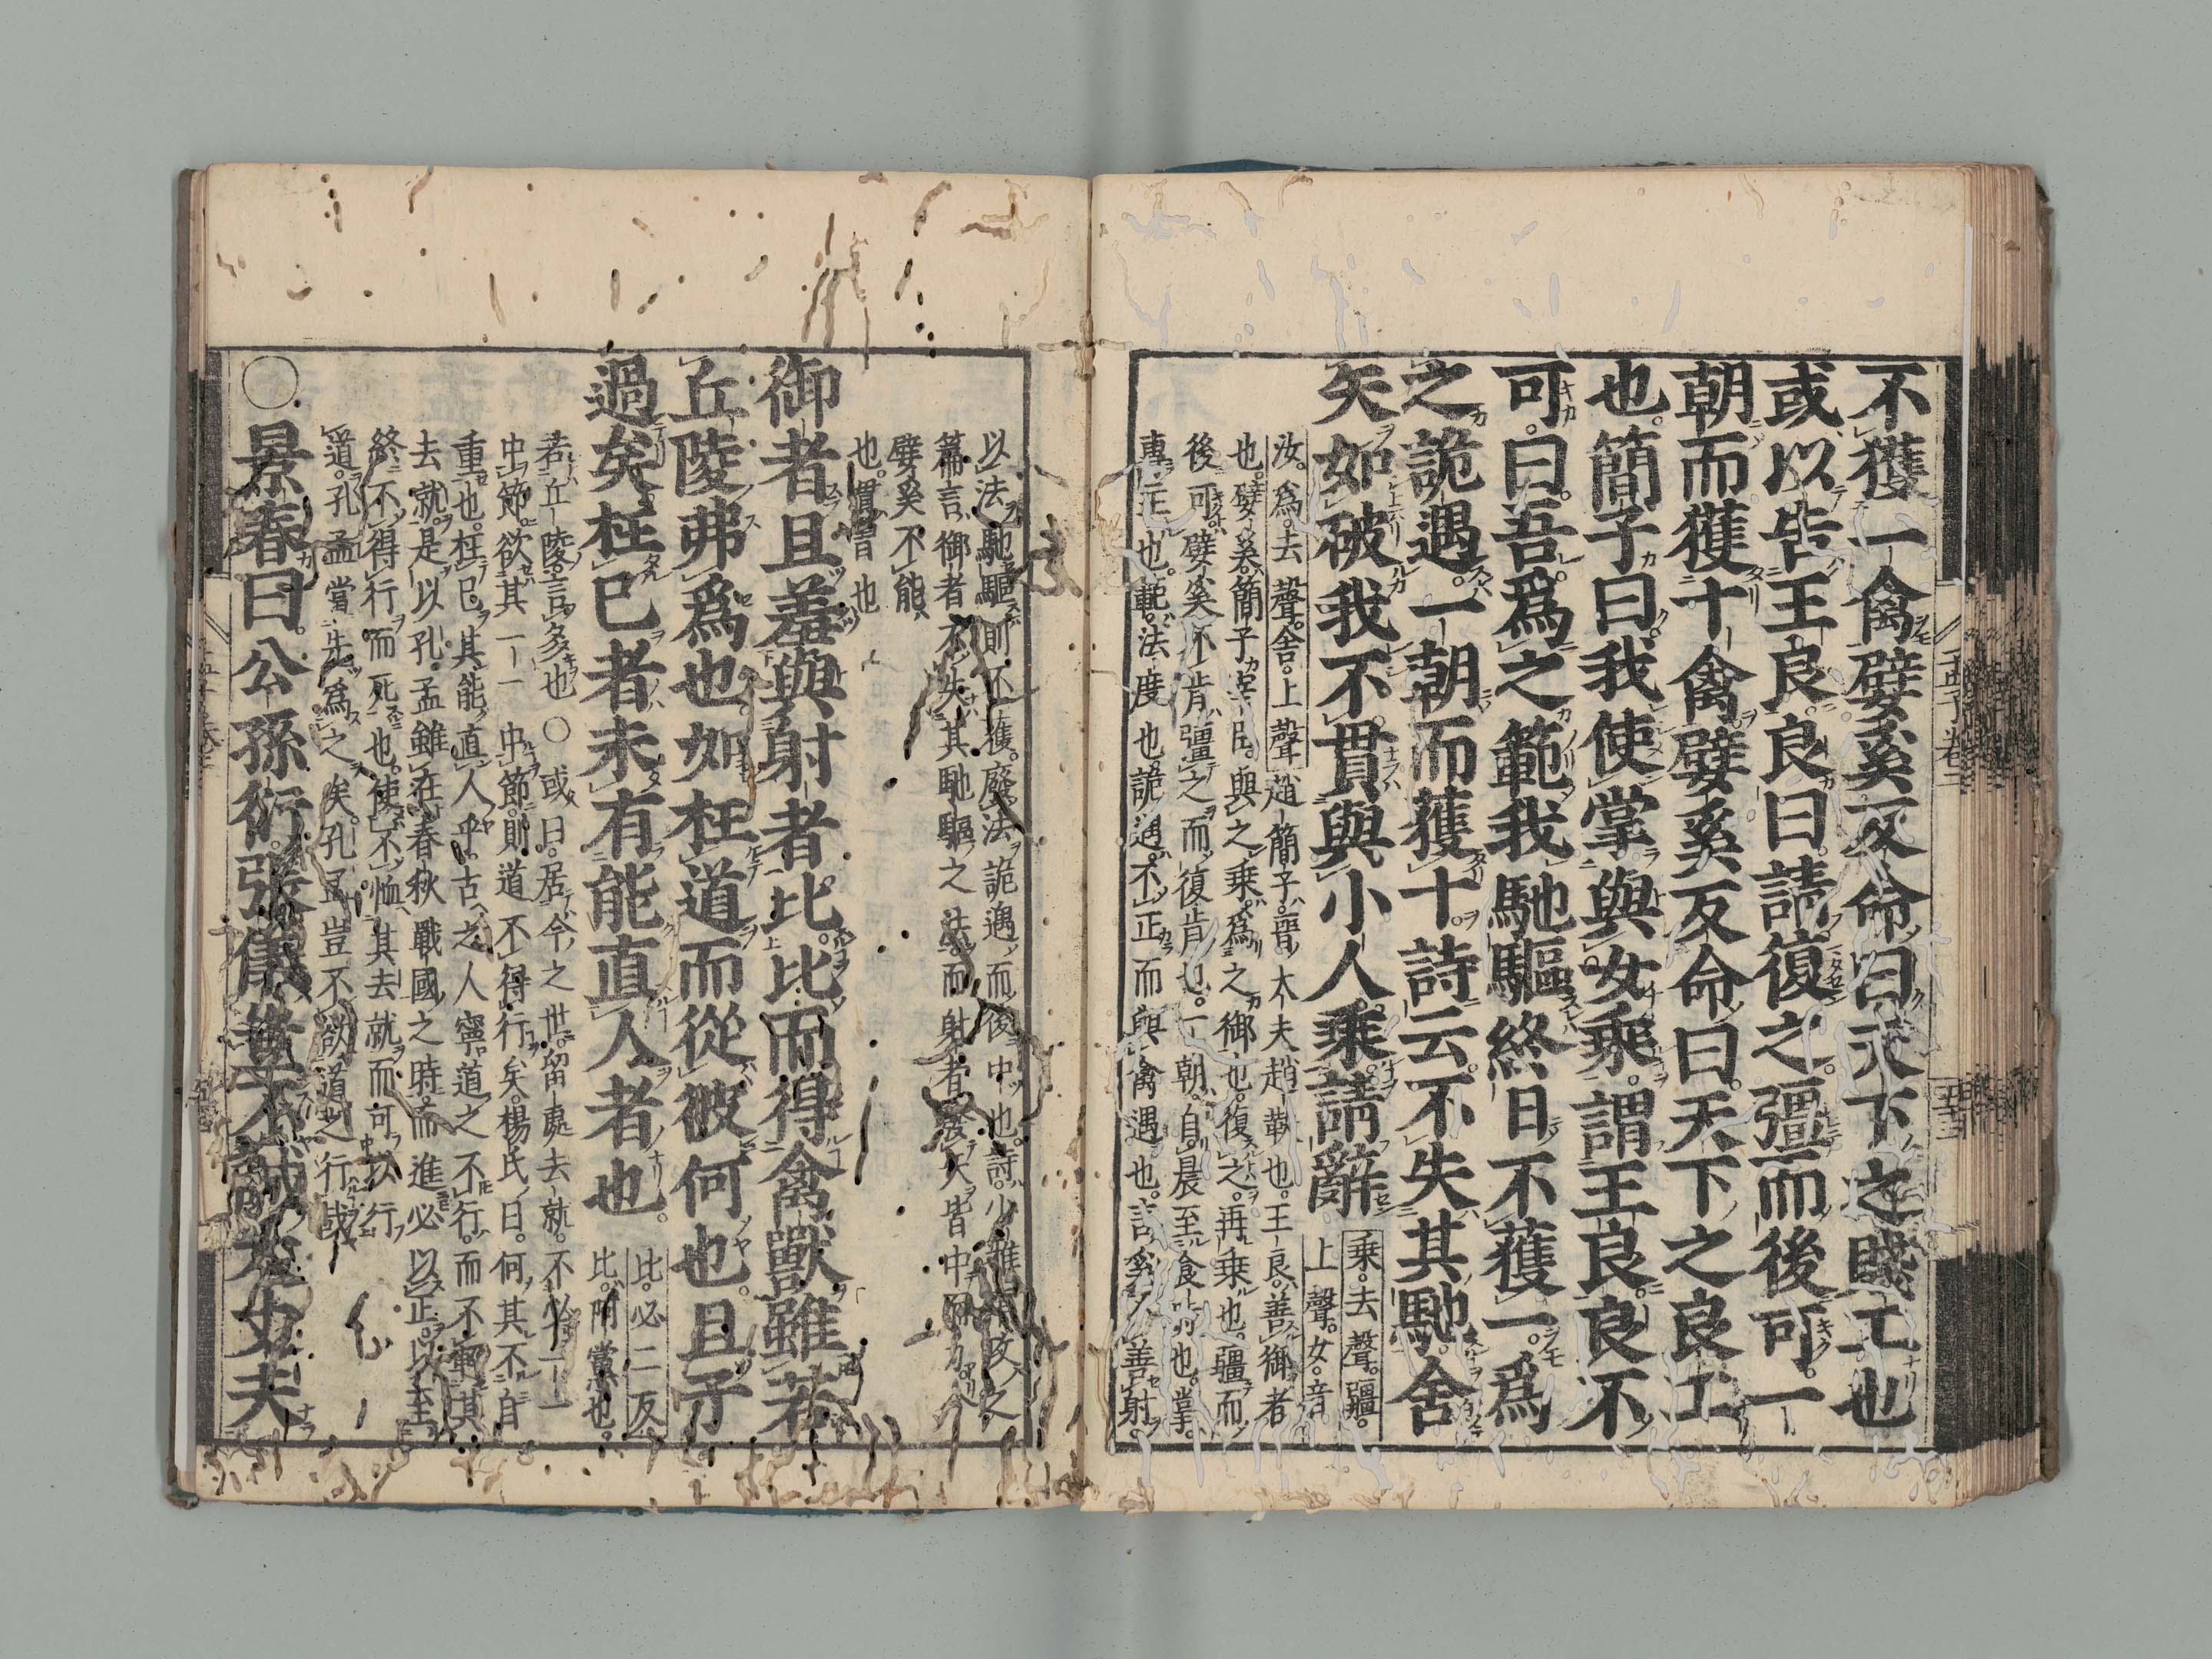 不獲一禽嬖奚反命曰天下之賤工也
或以告王良良曰請復之彊而後可一
朝而獲十禽嬖奚反命曰天下之良工
也簡子曰我使掌與女乘謂王良良不
可曰吾爲之範我馳驅終日不獲一爲
之詭遇一朝而獲十詩云不失其馳舍
矢如破我不貫與小人乘請辭
乘去聲彊
上聲女音
汝爲去聲舍上聲 趙簡子晉大夫趙鞅也王良善御者
也嬖奚簡子幸臣與之乘爲之御也復之再乘也彊而
後可嬖奚不肯彊之而後肯也一朝自晨至食時也掌
專主也範法度也詭遇不正而與禽遇也言奚不善射
以法馳驅則不獲廢法詭遇而後中也詩小雅車攻之
篇言御者不失其馳驅之法而射者發矢皆中而力今
嬖奚不能
也貫習也
御者且羞與射者比比而得禽獸雖若
丘陵弗爲也如枉道而從彼何也且子
過矣枉己者未有能直人者也
比必二反
比阿黨也
若丘陵言多也〇或曰居今之世出處去就不必一一
中節欲其一一中節則道不得行矣楊氏曰何其不自
重也枉己其能直人乎古之人寧道之不行而不輕其
去就是以孔孟雖在春秋戰國之時而進必以正以至
終不得行而死也使不恤其去就而可以行
道孔孟當先爲之矣孔孟豈不欲道之行哉
〇景春曰公孫衍張儀豈不誠大丈夫
孟子卷三